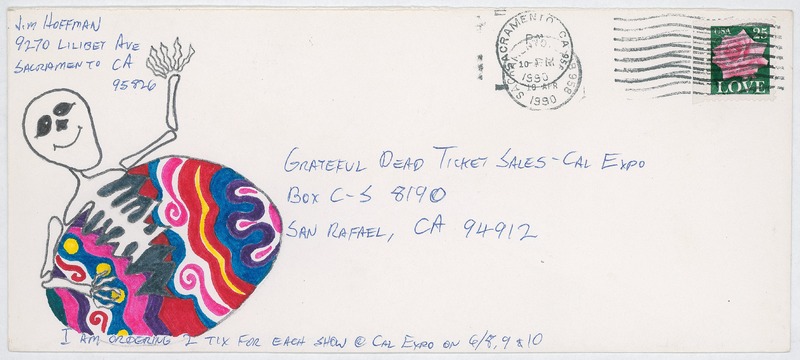 Jim Hoffman
9270 Lilibet Ave
Sacramento CA
95826
SACRAMENTO CA 958
PM
10 APR
1990
1990
USA 25
LOVE
Grateful Dead Ticket Sales - Cal Expo
Box C-S 8190
San Rafael, CA 94912
I am ordering 2 tix for each show @ Cal Expo on 6/8, 9 & 10